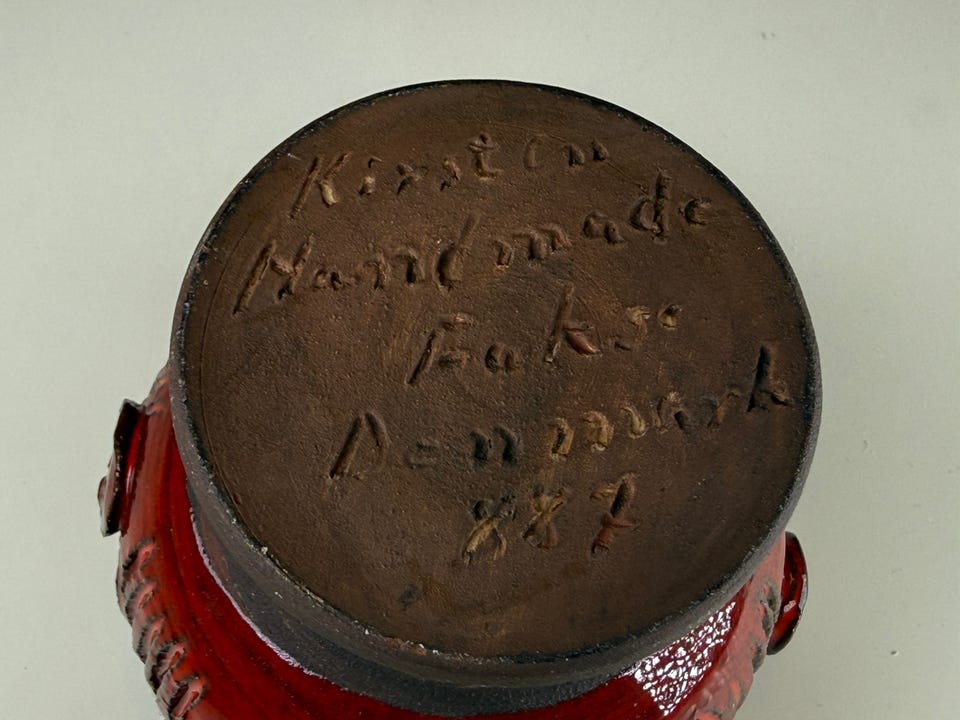 Kirsten
Handmade
Fakse
Denmark
887